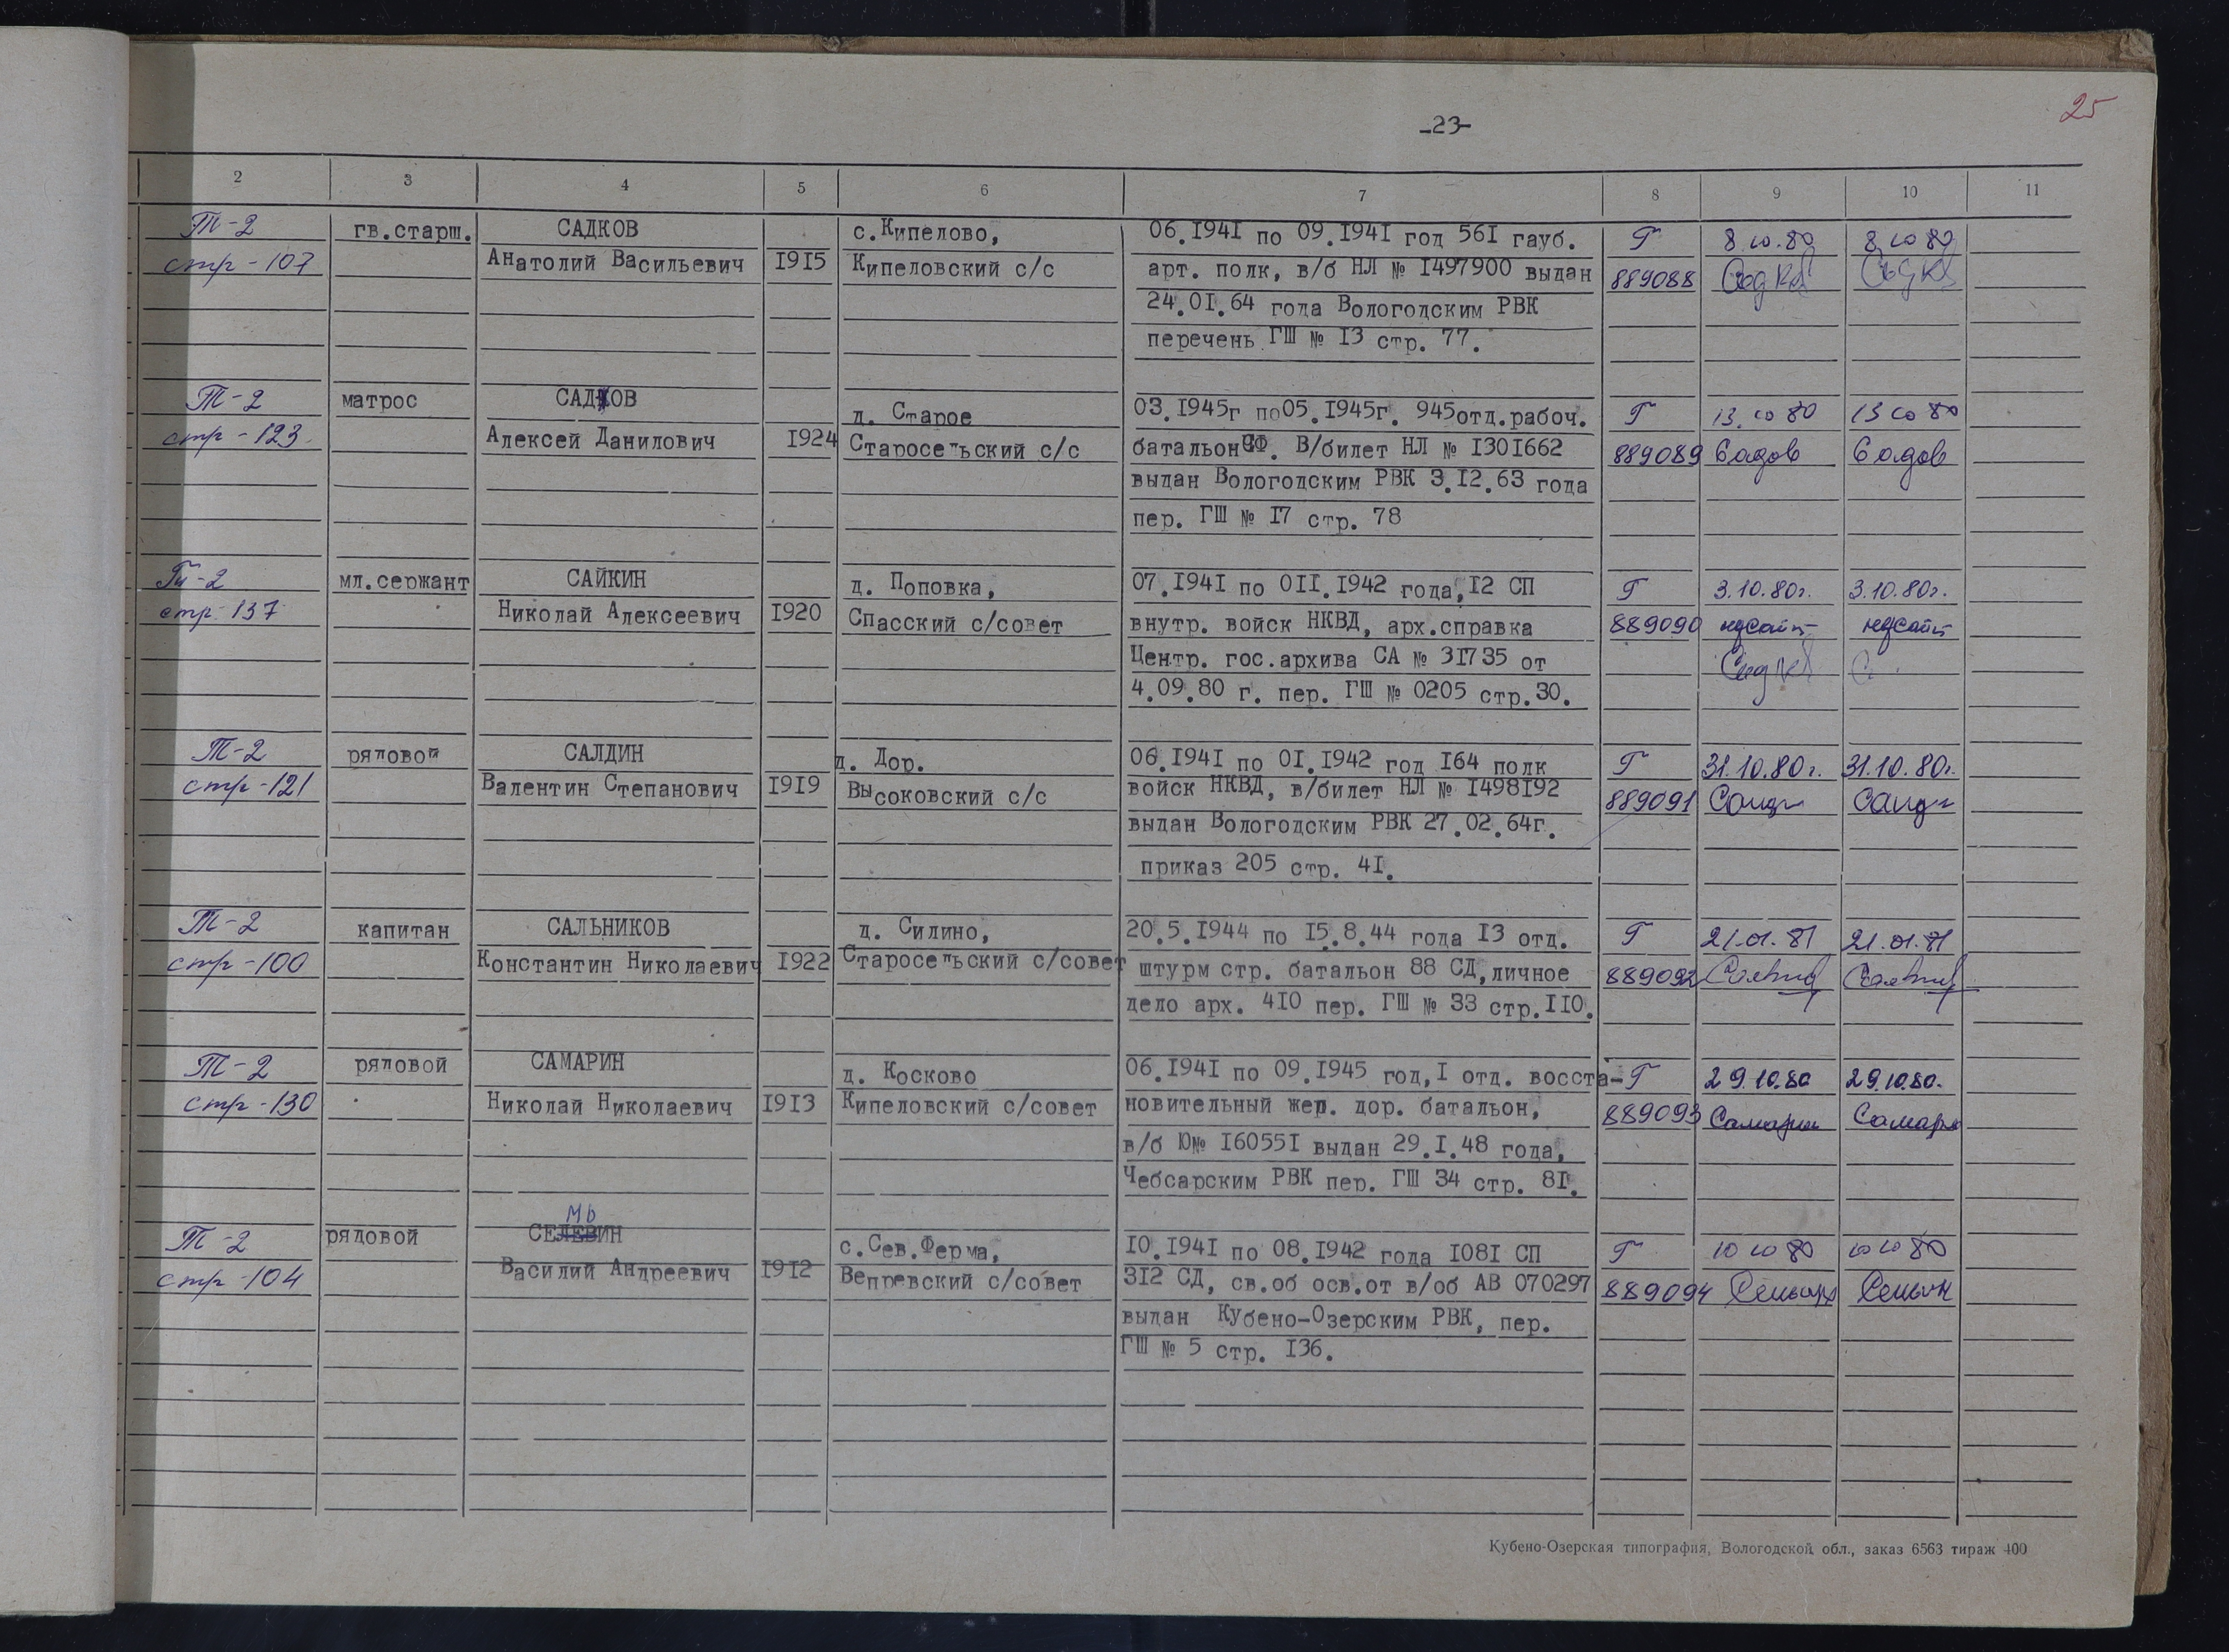 25
-23-
2 3 4 5 6 7 8 9 10 11
Т-2 гв.старш. САДКОВ с.Кипелово, 06.I94I по 09.I94I год 56I гауб. Г 8.10.80 8.10.80
стр-107 Анатолий Васильевич I9I5 Кипеловский с/с арт. полк, в/б НЛ № I497900 выдан 889088
24.0I.64 года Вологодским РВК
перечень ГШ № I3 стр. 77.
Т-2 матрос САДОВ д. Старое 03.I945г по05.I945г. 945отд.рабоч. Г 13.10 80 13 10 80
стр-123. Алексей Данилович I924 Старосельский с/с батальон СФ. В/билет НЛ № I30I662 889089 Садов Садов
выдан Вологодским РВК 3.I2.63 года
пер. ГШ № I7 стр. 78
Т-2 мл.сержант САЙКИН д. Поповка, 07.I94I по 0II.I942 года,I2 СП Г 3.10.80г. 3.10.80г.
стр. 137 Николай Алексеевич I920 Спасский с/совет внутр. войск НКВД, арх.справка 889090
Центр. гос.архива СА № 3I735 от
4.09.80 г. пер. ГШ № 0205 стр.30.
Т-2 рядовой САЛДИН д. Дор. 06.I94I по 0I.I942 год I64 полк Г 31.10.80г. 31.10.80г.
стр-121 Валентин Степанович I9I9 Высоковский с/с войск НКВД, в/билет НЛ № I498I92 889091
выдан Вологодским РВК 27.02.64г.
приказ 205 стр. 4I.
Т-2 капитан САЛЬНИКОВ д. Силино, 20.5.I944 по I5.8.44 года I3 отд. Г 21.01.81 21.01.81
стр-100 Константин Николаевич I922 Старосельский с/совет штурм стр. батальон 88 СД,личное 889092
дело арх. 4I0 пер. ГШ № 33 стр.II0.
Т-2 рядовой САМАРИН д. Косково 06.I94I по 09.I945 год,I отд. восста- Г 29.10.80 29.10.80.
стр-130 Николай Николаевич I9I3 Кипеловский с/совет новительный жел. дор. батальон, 889093 Самарин
в/б Ю№ I6055I выдан 29.I.48 года,
Чебсарским РВК пер. ГШ 34 стр. 8I.
МЬ
Т-2 рядовой СЕЛЕВИН с.Сев.Ферма, I0.I94I по 08.I942 года I08I СП Г 10 10 80 10 10 80
стр-104 Василий Андреевич I9I2 Вепревский с/совет 3I2 СД, св.об осв.от в/об АВ 070297 889094
выдан Кубено-Озерским РВК, пер.
ГШ № 5 стр. I36.
Кубено-Озерская типография, Вологодской обл., заказ 6563 тираж 400